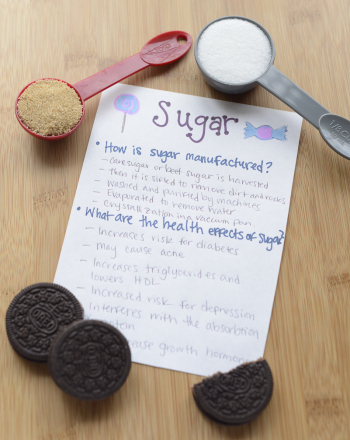 Sugar
• How is sugar manufactured?
- Cane sugar or beet sugar is harvested
- Then it is sifted to remove dirt and rocks
- Washed and purified by machines
- Evaporated to remove water
- Crystallization in a vacuum pan
• What are the health effects of sugar?
- Increases risk for diabetes
- May cause acne
- Increases triglycerides and
lowers HDL
- Increased risk for depression
Interferes with the absorption
growth hormone